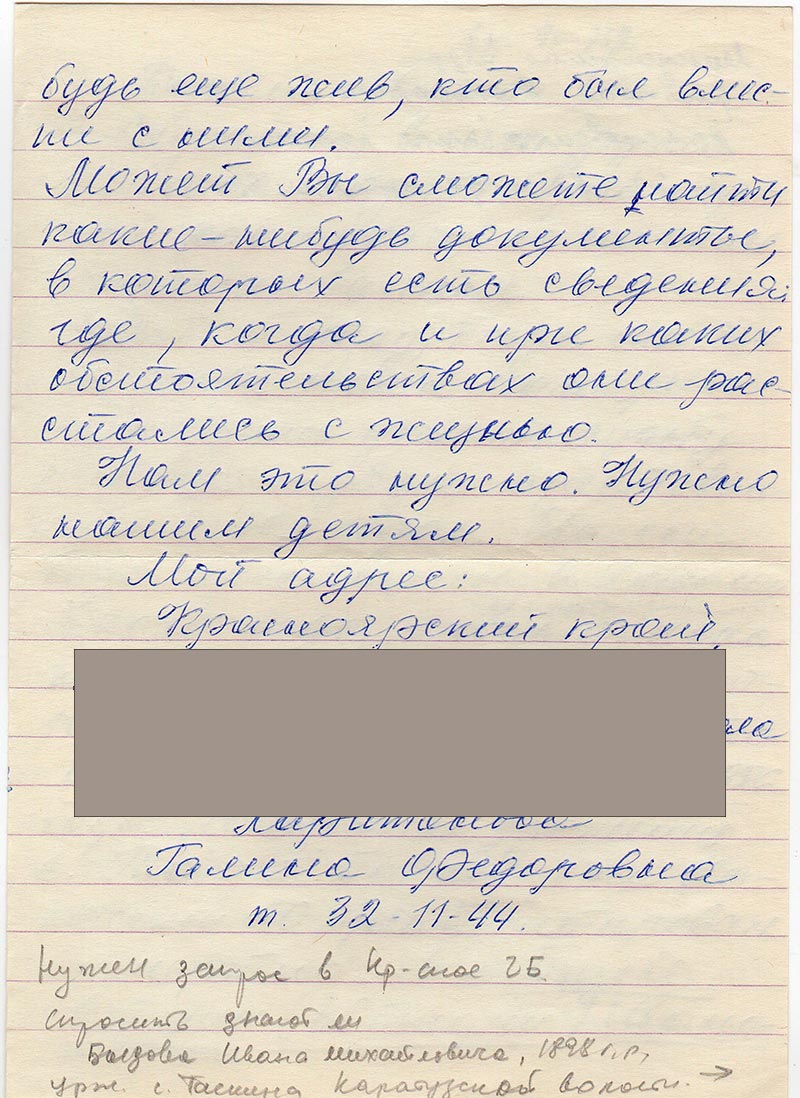 будь еще жив, кто был вмес-
ти с ними.
Может Вы сможете найти
какие-нибудь документы,
в которых есть сведения:
где, когда и при каких
обстоятельствах они рас-
стались с жизнью.
Нам это нужно. Нужно
нашим детям.
Мой адрес:
Красноярский край,
Галина Федоровна
т. 32-11-44.
Нужен запрос в Кр-ское ГБ
спросить знают ли
Ивана Михайловича, 1898 г.р.,
урж. с. Таскина Каратузской волости. →